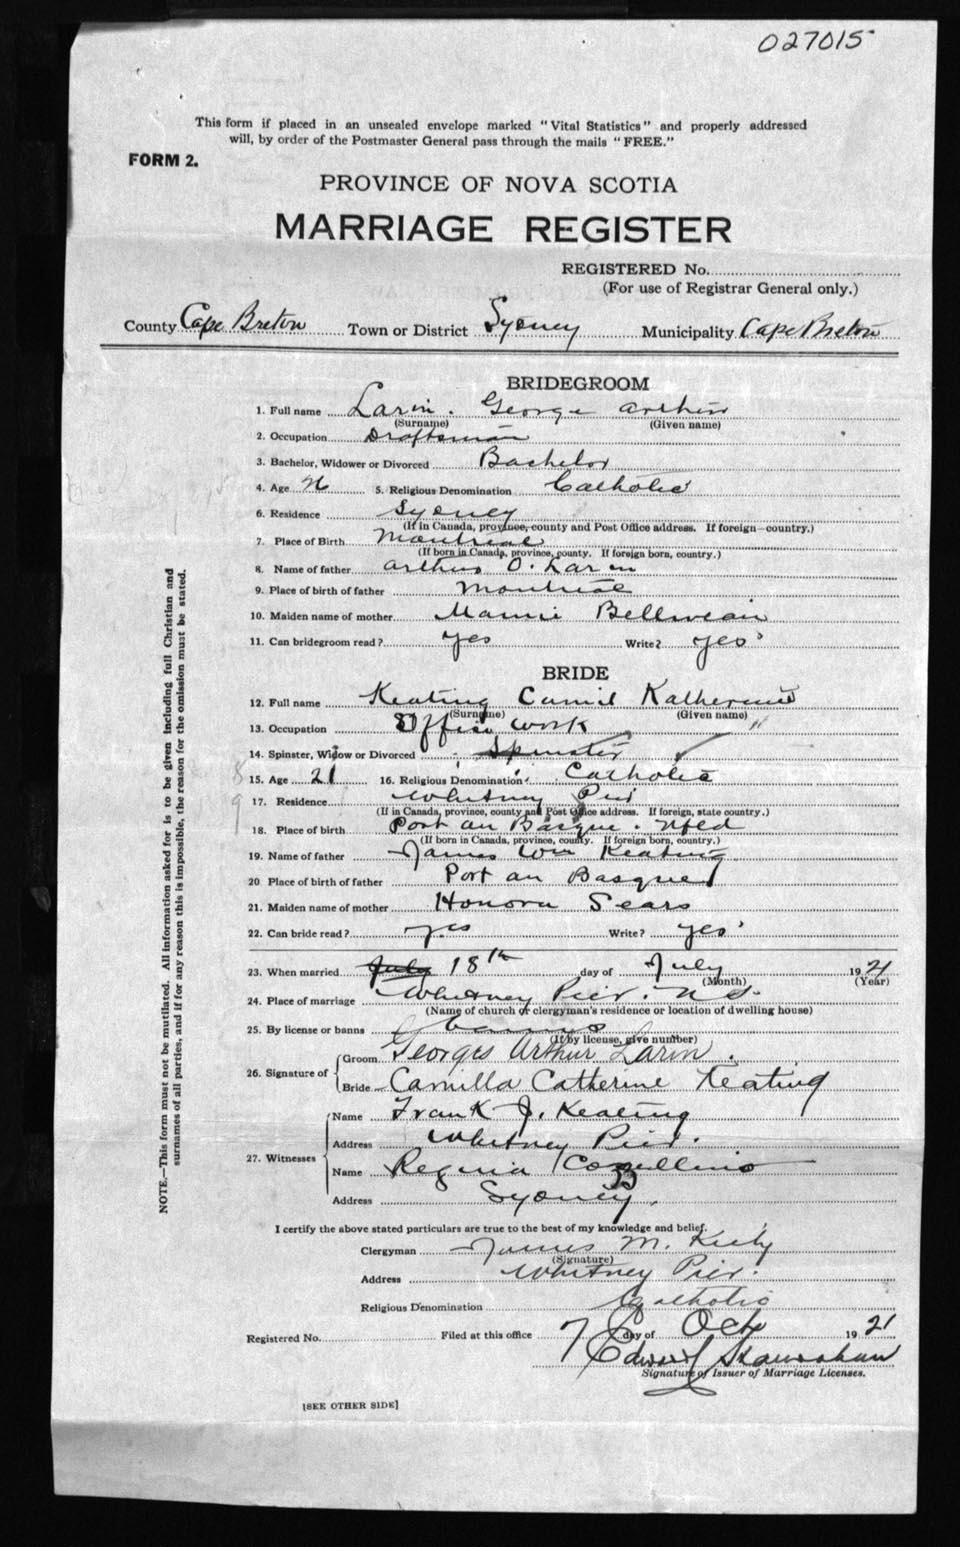 027015
This form if placed in an unsealed envelope marked "Vital Statistics" and properly addressed
will, by order of the Postmaster General pass through the mails "FREE."
FORM 2.
PROVINCE OF NOVA SCOTIA
MARRIAGE REGISTER
REGISTERED No.
(For use of Registrar General only.)
County Cape Breton Town or District Sydney Municipality Cape Breton
BRIDEGROOM
1. Full name Larin. George Arthur
(Surname) (Given name)
2. Occupation Draftsman
3. Bachelor, Widower or Divorced Bachelor
4. Age 5. Religious Denomination Catholic
6. Residence Sydney
(If in Canada, province, county and Post Office address. If foreign—country.)
7. Place of Birth Montreal
(If born in Canada, province, county. If foreign born, country.)
8. Name of father Arthur O. Larin
9. Place of birth of father Montreal
10. Maiden name of mother Mamie
11. Can bridegroom read? yes Write? yes
BRIDE
12. Full name Keating Camil Katherine
(Surname) (Given name)
13. Occupation Office work
14. Spinster, Widow or Divorced Spinster
15. Age 21 16. Religious Denomination Catholic
17. Residence Whitney Pier
(If in Canada, province, county and Post Office address. If foreign, state country.)
18. Place of birth Port au Basque. Nfld
(If born in Canada, province, county. If foreign born, country.)
19. Name of father James Wm Keating
20 Place of birth of father Port au Basque
21. Maiden name of mother Honora Sears
22. Can bride read? yes Write? yes
23. When married July 18th day of July 1921
(Month) (Year)
24. Place of marriage Whitney Pier. N.S.
(Name of church or clergyman's residence or location of dwelling house)
25. By license or banns banns
(If by license, give number)
26. Signature of
Groom Georges Arthur Larin.
Bride Camilla Catherine Keating
27. Witnesses
Name Frank J. Keating
Address Whitney Pier.
Name Regina
Address Sydney.
I certify the above stated particulars are true to the best of my knowledge and belief.
Clergyman James M. Kiely
(Signature)
Address Whitney Pier.
Religious Denomination Catholic
Registered No. Filed at this office 7 day of Oct 1921
Edward
Signature of Issuer of Marriage Licenses.
[SEE OTHER SIDE]
NOTE.—This form must not be mutilated. All information asked for is to be given including full Christian and
surnames of all parties, and if for any reason this is impossible, the reason for the omission must be stated.